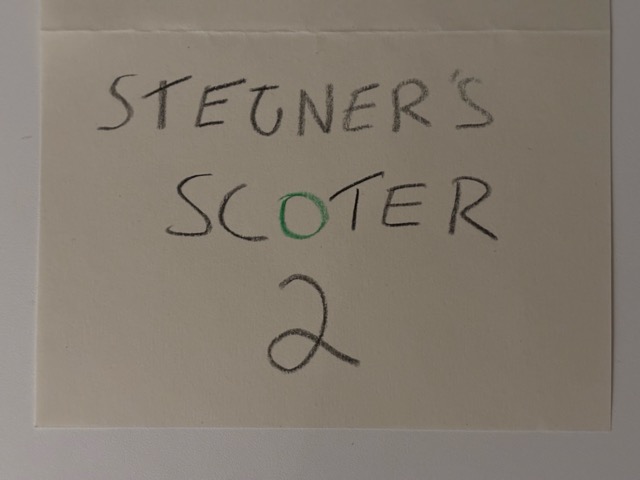 STEJNER'S
SCOTER
2